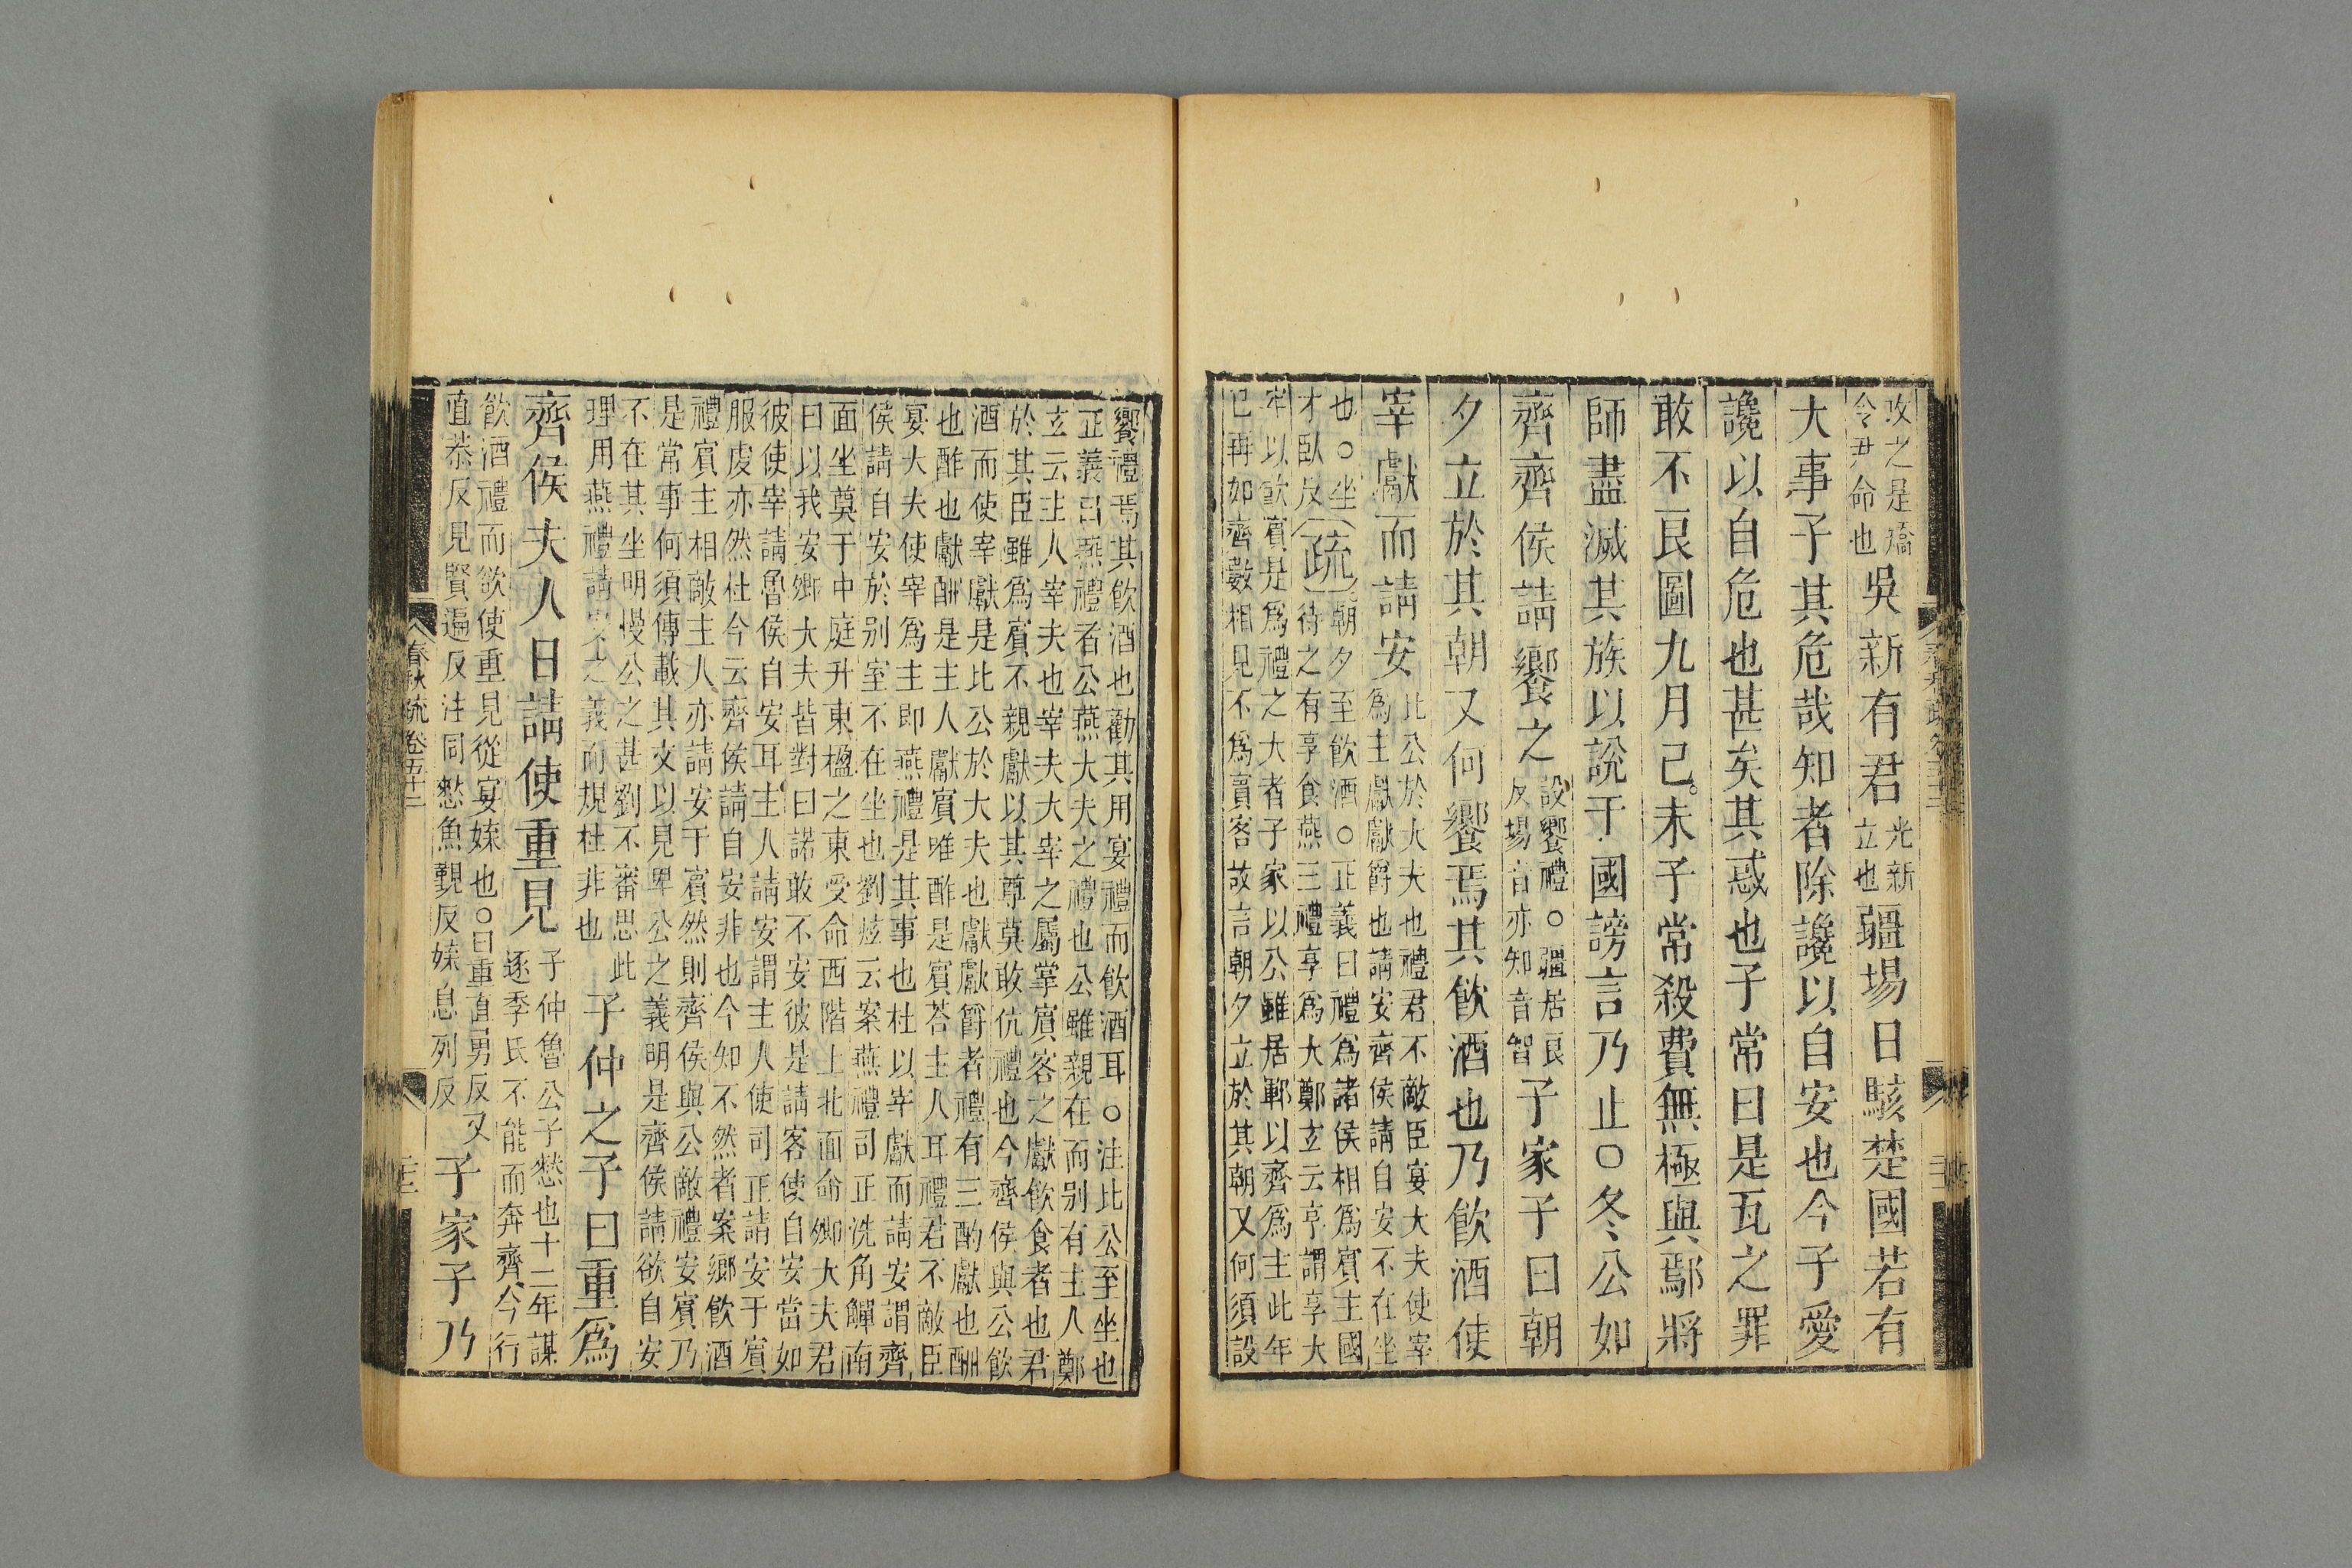 攻之是矯
令尹命也
吳新有君
光新
立也
疆場日駭楚國若有
大事子其危哉知者除讒以自安也今子愛
讒以自危也甚矣其惑也子常曰是瓦之罪
敢不良圖九月己未子常殺費無極與鄢將
師盡滅其族以說于國謗言乃止○冬公如
齊齊侯請饗之
設饗禮○疆居良
反場音亦知音智
子家子曰朝
夕立於其朝又何饗焉其飲酒也乃飲酒使
宰獻而請安
比公於大夫也禮君不敵臣宴大夫使宰
為主獻獻爵也請安齊侯請自安不在坐
也○坐
才臥反
疏
朝夕至飲酒○正義曰禮為諸侯相為賓主國
待之有享食燕三禮享為大鄭玄云享謂享大
牢以飲賓是為禮之大者子家以公雖居鄆以齊為主此年
已再如齊數相見不為賓客故言朝夕立於其朝又何須設
饗禮焉其飲酒也勸其用宴禮而飲酒耳○注比公至坐也
正義曰燕禮者公燕大夫之禮也公雖親在而别有主人鄭
玄云主人宰夫也宰夫大宰之屬掌賓客之獻飲食者也君
於其臣雖為賓不親獻以其尊莫敢伉禮也今齊侯與公飲
酒而使宰獻是比公於大夫也獻獻爵者禮有三酌獻也酬
也酢也獻酬是主人獻賓唯酢是賓荅主人耳禮君不敵臣
宴大夫使宰為主即燕禮是其事也杜以宰獻而請安謂齊
侯請自安於别室不在坐也劉炫云案燕禮司正洗角觶南
面坐奠于中庭升東楹之東受命西階上北面命卿大夫君
曰以我安卿大夫皆對曰諾敢不安彼是請客使自安當如
彼使宰請魯侯自安耳主人請安謂主人使司正請安于賓
服虔亦然杜今云齊侯請自安非也今知不然者案鄉飲酒
禮賓主相敵主人亦請安于賓然則齊侯與公敵禮安賓乃
是常事何須傳載其文以見卑公之義明是齊侯請欲自安
不在其坐明慢公之甚劉不審思此
理用燕禮請安之義而規杜非也
子仲之子曰重為
齊侯夫人曰請使重見
子仲魯公子憖也十二年謀
逐季氏不能而奔齊今行
飲酒禮而欲使重見從宴媟也○曰重直勇反又
直恭反見賢遍反注同憖魚覲反媟息列反
子家子乃
春秋疏卷五十二